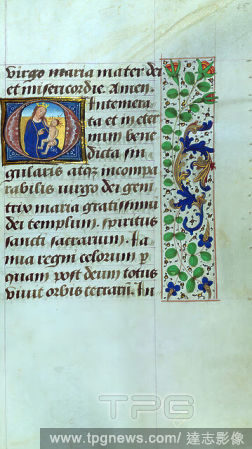 virgo maria mater dei
et misericordie. Amen.
Intemera
ta et in eter
num bene
dicta sin
gularis atq; incompa
rabilis virgo dei geni
trix maria gratissimū
dei templum. spiritus
sancti sacrarium. Ia
nua regni celorum p
quam post deum totus
viuit orbis terrarū. In
TPG
www.tpgnews.com/ 達志影像